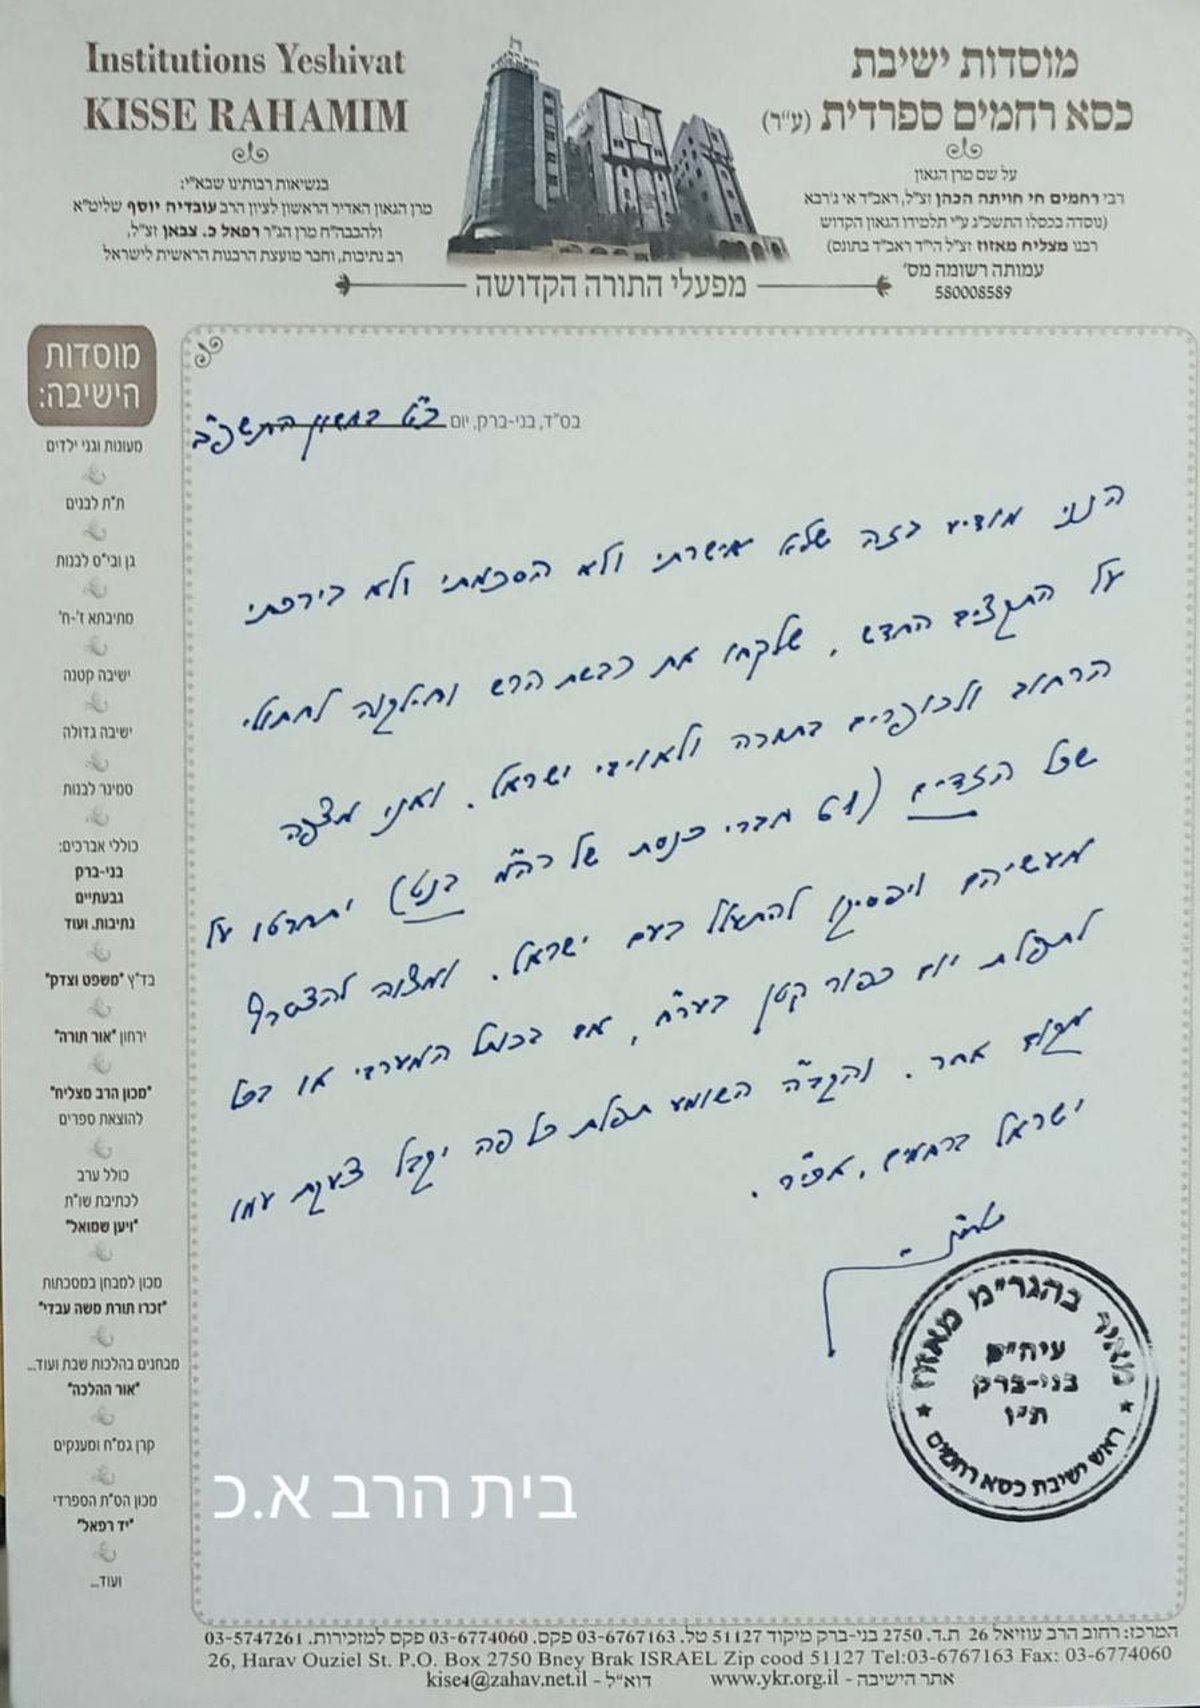 Institutions Yeshivat
KISSE RAHAMIM
בנשיאות רבותינו שבא"י:
מרן הגאון האדיר הראשון לציון הרב עובדיה יוסף שליט"א
ולהבבה"ח מרן הג"ר רפאל כ. צבאן זצ"ל,
רב נתיבות, וחבר מועצת הרבנות הראשית לישראל
מוסדות ישיבת
כסא רחמים ספרדית (ע"ר)
על שם מרן הגאון
רבי רחמים חי חויתה הכהן זצ"ל, ראב"ד אי ג'רבא
(נוסדה בכסלו התשכ"ג ע"י תלמידו הגאון הקדוש
רבנו מצליח מאזוז זצ"ל הי"ד ראב"ד בתונס)
עמותה רשומה מס'
580008589
מפעלי התורה הקדושה
בס"ד, בני-ברק, יום כ"ט בחשון התשפ"ב
הנני מודיע בזה שלא אישרתי ולא הסכמתי ולא בירכתי
על התקציב החדש, שלקחו את כבשת הרש וחילקוה לחתולי
הרחוב ולכופרים בתורה ולאויבי ישראל. ואני מצפה
שכל הזדים (61 חברי כנסת של רה"מ בנט) יתחרטו על
מעשיהם ויפסיקו להתעלל בעם ישראל. ומצוה להצטרף
לתפלת יום כפור קטן בער"ח, אם בכותל המערבי או בכל
מקום אחר. והקב"ה השומע תפלת כל פה יקבל צעקת עמו
ישראל ברחמים, אכי"ר.
מאיר בהגר"מ מאזוז
עיה"ק
בני-ברק
ת"ו
ראש ישיבת כסא רחמים
בית הרב א.כ
מוסדות
הישיבה:
מעונות וגני ילדים
ת"ת לבנים
גן ובי"ס לבנות
מתיבתא ז'-ח'
ישיבה קטנה
ישיבה גדולה
סמינר לבנות
כוללי אברכים:
בני-ברק
גבעתיים
נתיבות, ועוד
בד"ץ "משפט וצדק"
ירחון "אור תורה"
"מכון הרב מצליח"
להוצאת ספרים
כולל ערב
לכתיבת שו"ת
"ויען שמואל"
מכון למבחן במסכתות
"זכרו תורת משה עבדי"
מבחנים בהלכות שבת ועוד...
"אור ההלכה"
קרן גמ"ח ומענקים
מכון הס"ת הספרדי
"יד רפאל"
ועוד...
המרכז: רחוב הרב עוזיאל 26 ת.ד. 2750 בני-ברק מיקוד 51127 טל. 03-6767163 פקס. 03-6774060 פקס למזכירות. 03-5747261
26, Harav Ouziel St. P.O. Box 2750 Bney Brak ISRAEL Zip cood 51127 Tel:03-6767163 Fax: 03-6774060
אתר הישיבה - www.ykr.org.il דוא"ל - kise4@zahav.net.il